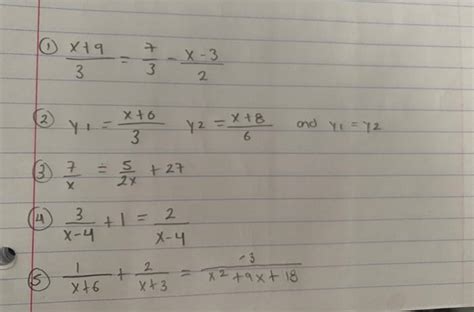 ① (x+9)/3 = 7/3 - (x-3)/2
② y1 = (x+6)/3 y2 = (x+8)/6 and y1 = y2
③ 7/x = 5/2x + 27
④ 3/(x-4) + 1 = 2/(x-4)
⑤ 1/(x+6) + 2/(x+3) = -3/(x²+9x+18)